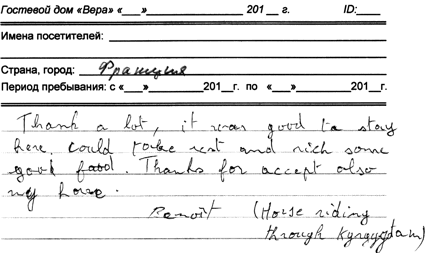 Гостевой дом «Вера» «___»______________201__ г. ID:____
Имена посетителей:
Страна, город: Франция
Период пребывания: с «___»__________201__г. по «___»__________201__г.
Thank a lot, it was good to stay
here. Could take rest and some
good food. Thanks for accept also
my horse.
Benoît (Horse riding
through Kyrgyzstan)